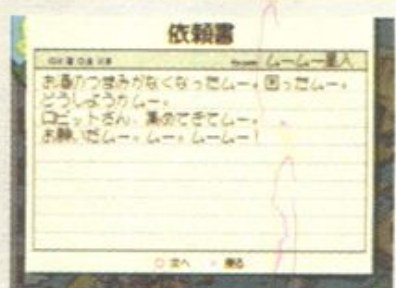 依頼書
ムームー星人
お酒のつまみがなくなったムー。困ったムー。
どうしようかムー。
ロビットさん、集めてきてムー。
お願いだムー。ムー。ムームー!
次へ 戻る